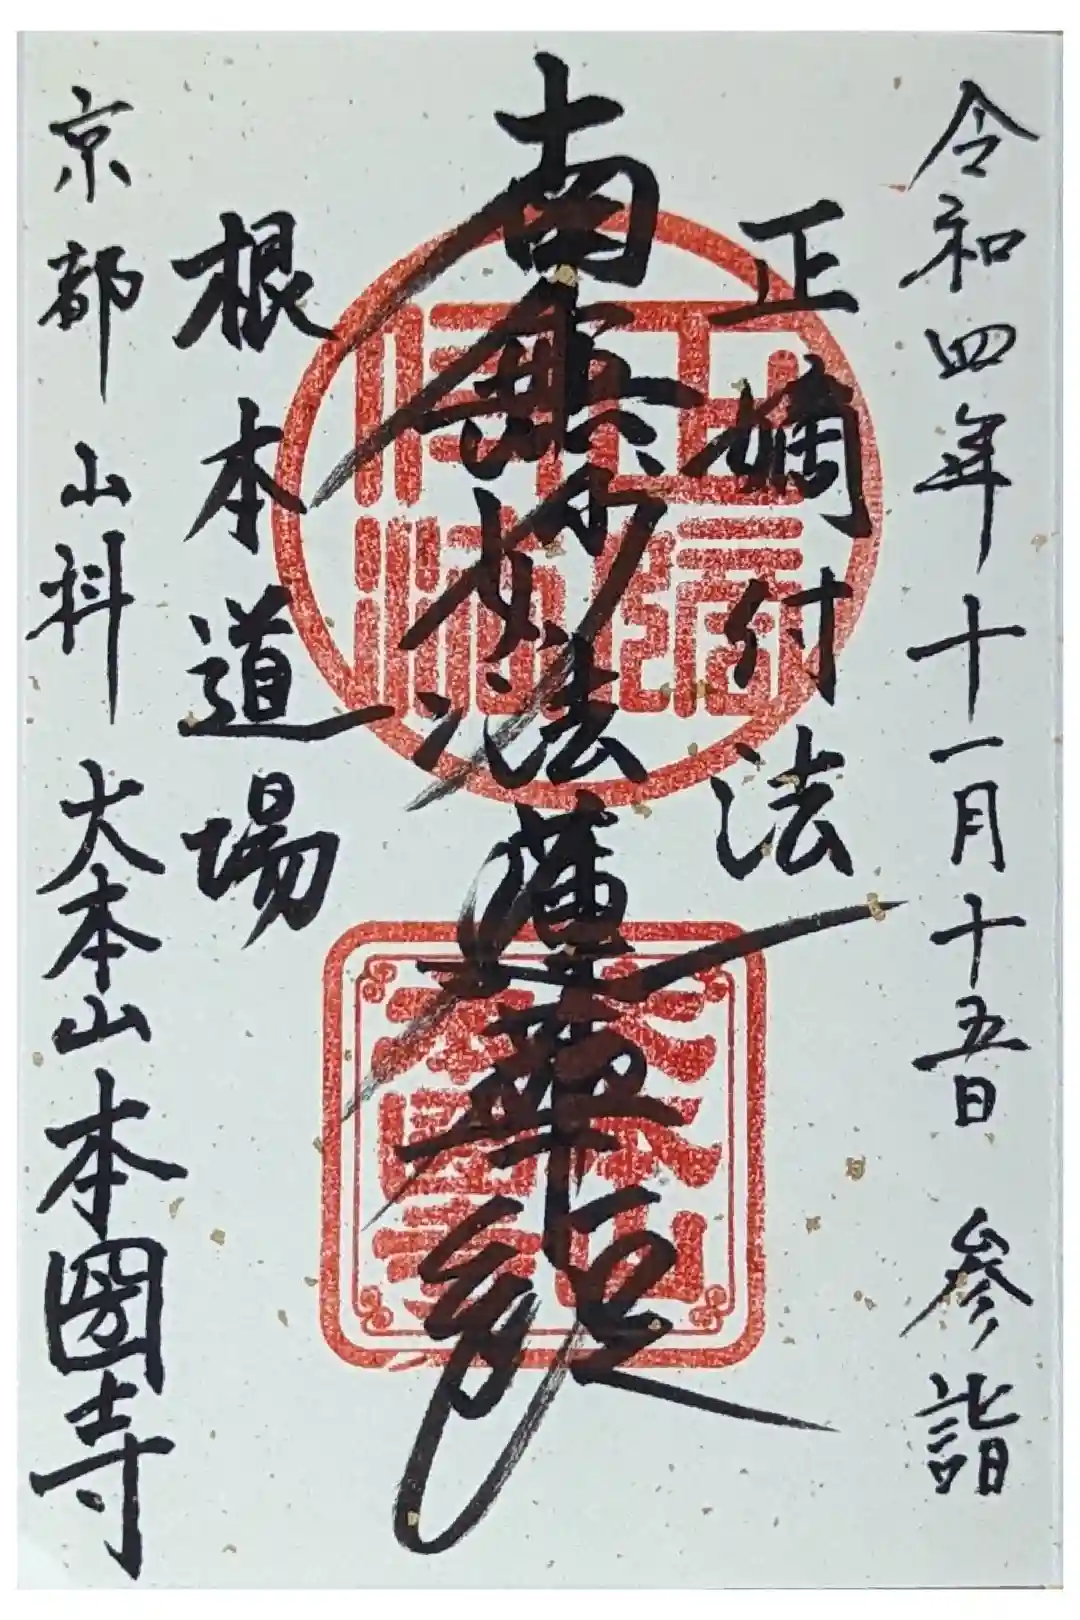 令和四年十一月十五日 参詣
正嫡付法
南無妙法蓮華経
根本道場
京都 山科 大本山 本圀寺
大本山
本圀寺